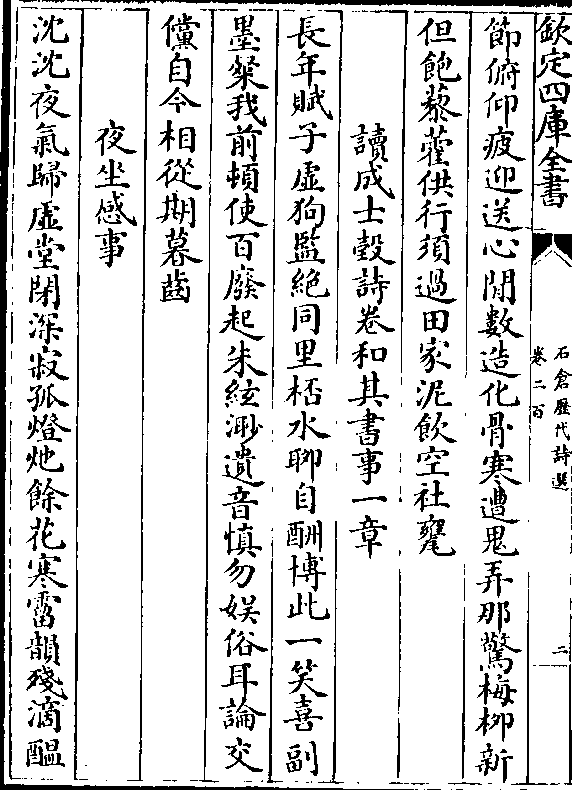 欽定四庫全書
石倉歷代詩選
卷二百
二
節俯仰疲迎送心閒數造化骨寒遭鬼弄那驚梅柳新
但飽藜藿供行須過田家泥飲空社甕
讀成士瑴詩卷和其書事一章
長年賦子虛狗監絶同里桮水聊自酬博此一笑喜副
墨粲我前頓使百廢起朱絃渺遺音慎勿娱俗耳論交
儻自今相從期暮齒
夜坐感事
沈沈夜氣歸虛堂閉深寂孤燈灺餘花寒霤韻殘滴醖